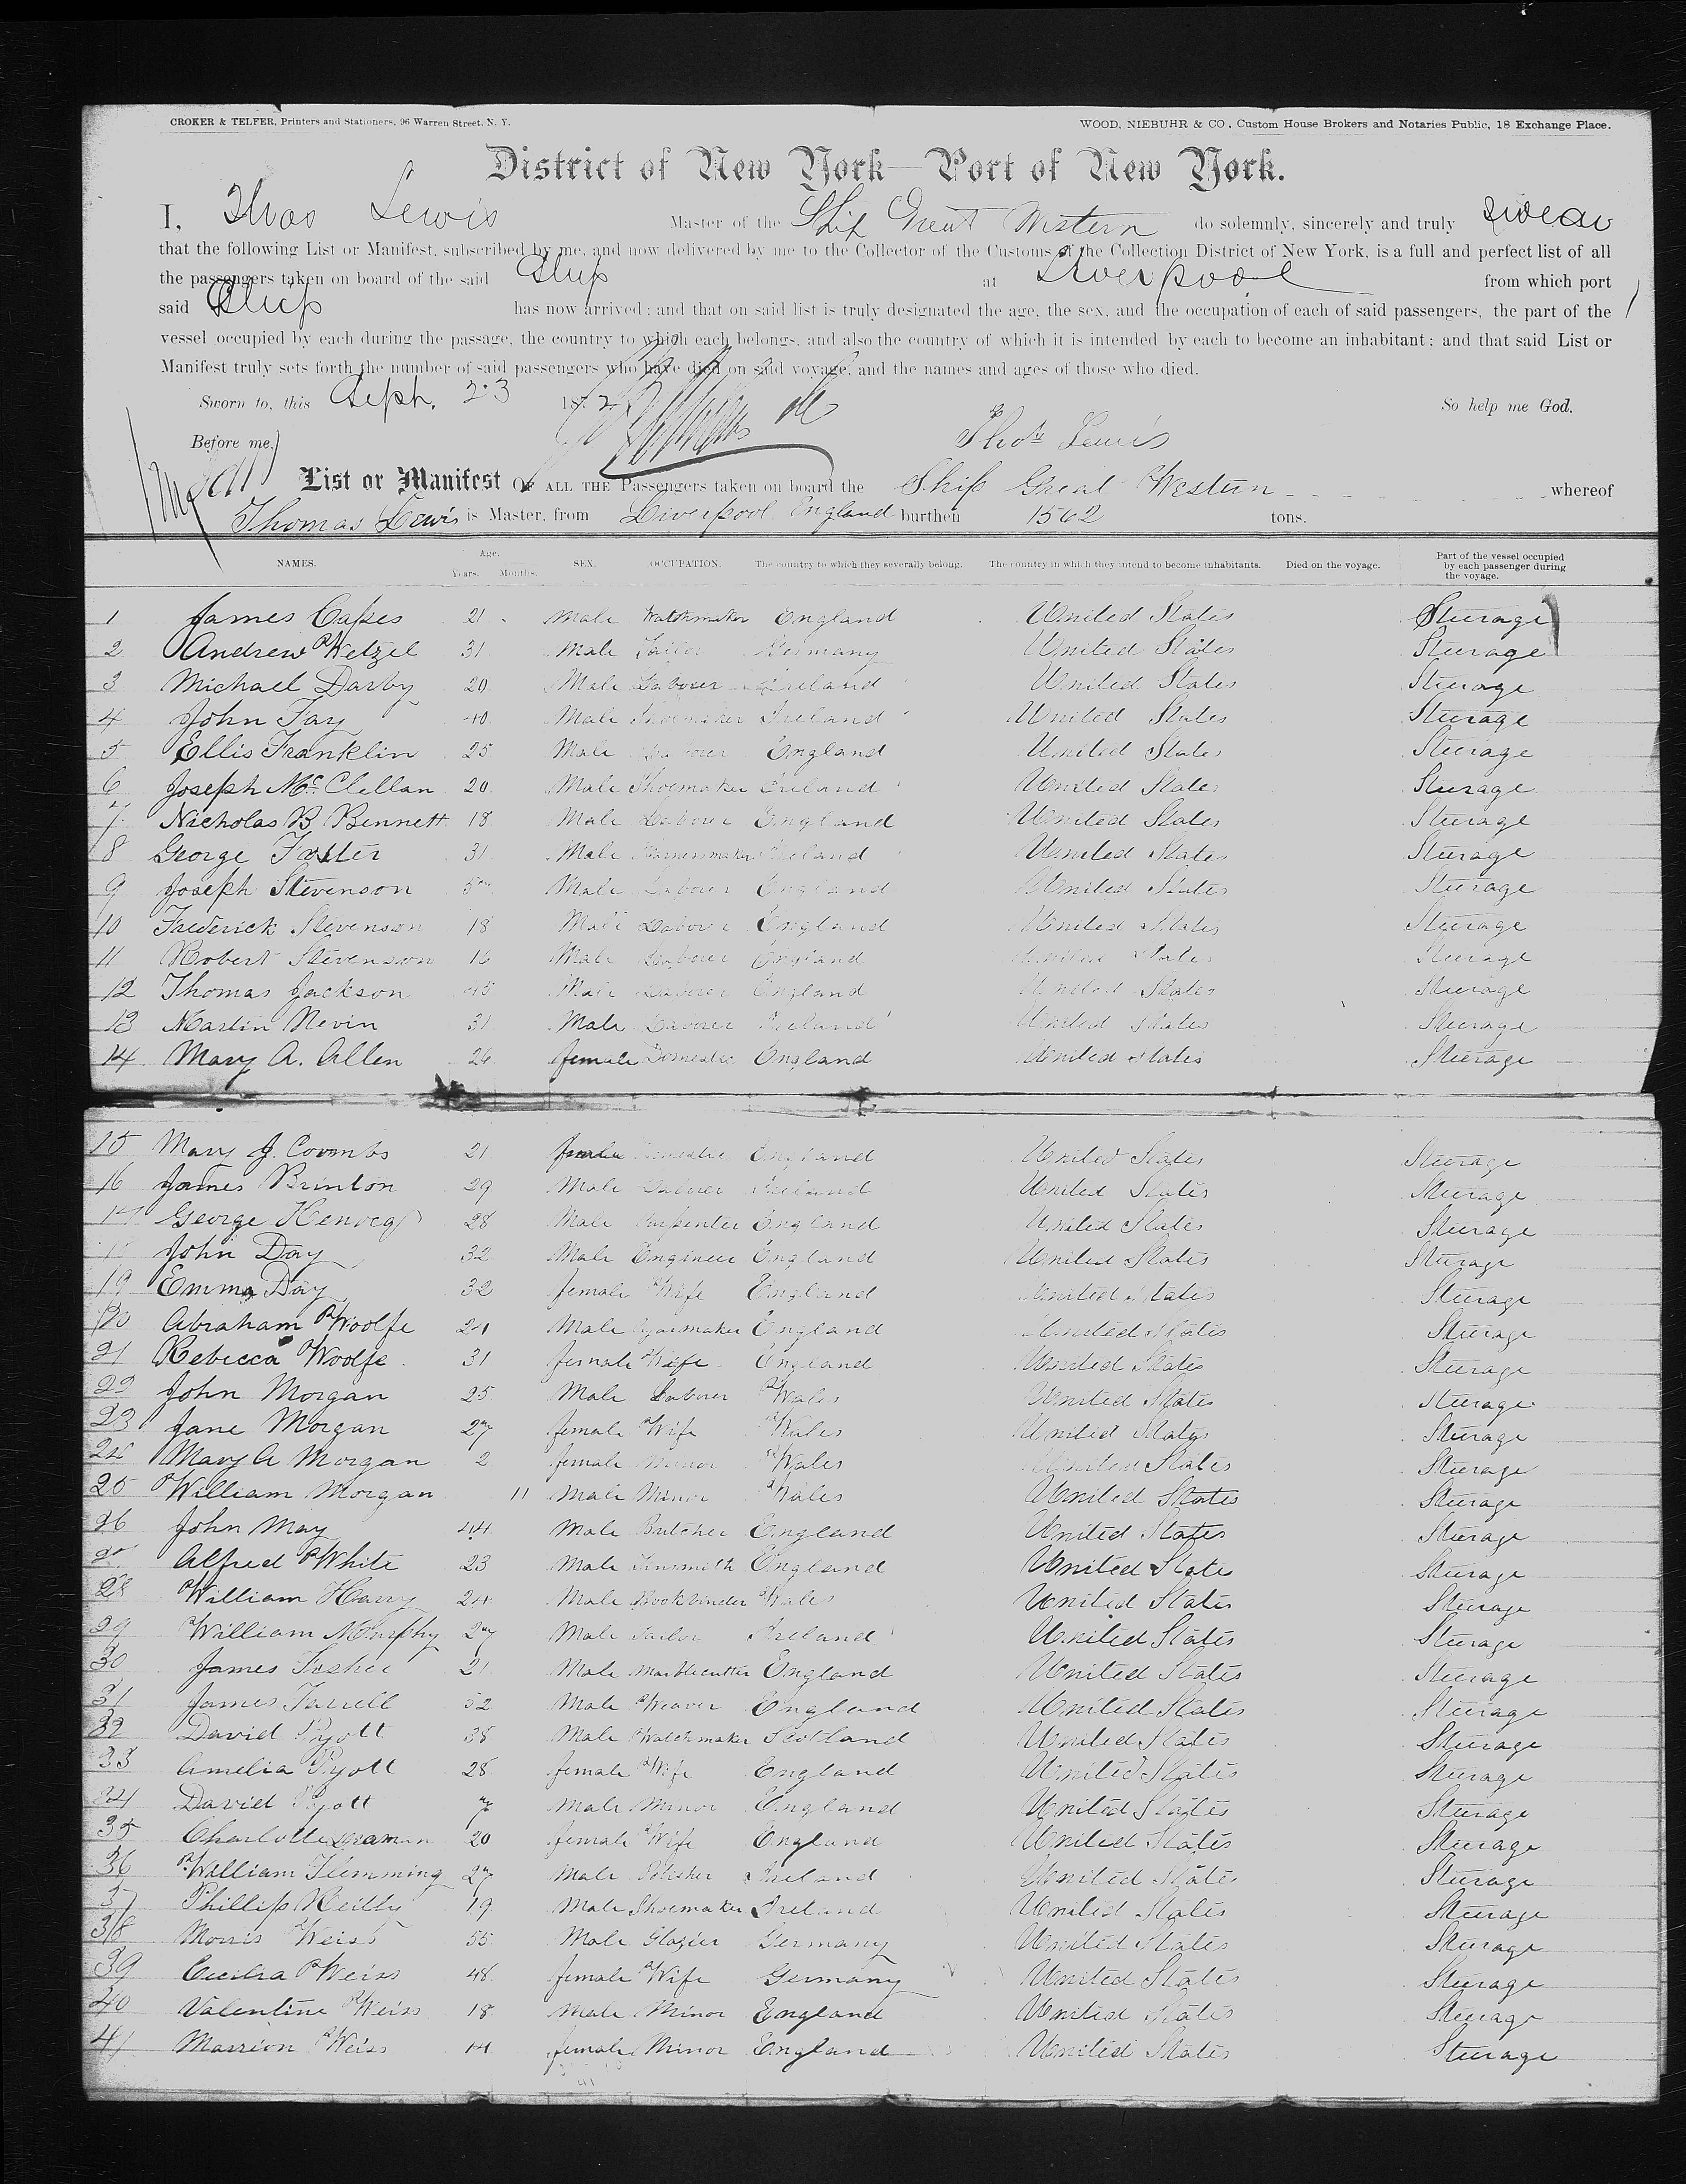 CROKER & TELFER, Printers and Stationers, 96 Warren Street, N. Y. WOOD, NIEBUHR & CO., Custom House Brokers and Notaries Public, 18 Exchange Place.
District of New York—Port of New York.
I, Thos Lewis Master of the Ship Great Western do solemnly, sincerely and truly swear
that the following List or Manifest, subscribed by me, and now delivered by me to the Collector of the Customs of the Collection District of New York, is a full and perfect list of all
the passengers taken on board of the said Ship at Liverpool from which port
said Ship has now arrived; and that on said list is truly designated the age, the sex, and the occupation of each of said passengers, the part of the
vessel occupied by each during the passage, the country to which each belongs, and also the country of which it is intended by each to become an inhabitant; and that said List or
Manifest truly sets forth the number of said passengers who have died on said voyage, and the names and ages of those who died.
Sworn to, this Sept. 23 1872 So help me God.
Before me, Thos Lewis
List or Manifest OF ALL THE Passengers taken on board the Ship Great Western whereof
Thomas Lewis is Master, from Liverpool England burthen 1562 tons.
NAMES. Age. Years. Months. SEX. OCCUPATION. The country to which they severally belong. The country in which they intend to become inhabitants. Died on the voyage. Part of the vessel occupied by each passenger during the voyage.
1 James 21 Male Watchmaker England United States Steerage
2 Andrew Wetzel 31 Male Tailor Germany United States Steerage
3 Michael Darby 20 Male Laborer Ireland United States Steerage
4 John Fay 40 Male Shoemaker Ireland United States Steerage
5 Ellis Franklin 25 Male Laborer England United States Steerage
6 Joseph McClellan 20 Male Shoemaker Ireland United States Steerage
7 Nicholas B Bennett 18 Male Laborer England United States Steerage
8 George Foster 31 Male Harnessmaker Ireland United States Steerage
9 Joseph Stevenson Male Laborer England United States Steerage
10 Frederick Stevenson 18 Male Laborer England United States Steerage
11 Robert Stevenson 16 Male Laborer England United States Steerage
12 Thomas Jackson 45 Male Laborer England United States Steerage
13 Martin Nevin 31 Male Laborer Ireland United States Steerage
14 Mary A. Allen 26 female Domestic England United States Steerage
15 Mary J. Coombs 21 female Domestic England United States Steerage
16 James Brinton 29 Male Laborer Ireland United States Steerage
17 George 28 Male Carpenter England United States Steerage
18 John Day 32 Male Engineer England United States Steerage
19 Emma Day 32 female Wife England United States Steerage
20 Abraham Woolfe 24 Male England United States Steerage
21 Rebecca Woolfe 31 female Wife England United States Steerage
22 John Morgan 25 Male Laborer Wales United States Steerage
23 Jane Morgan 27 female Wife Wales United States Steerage
24 Mary A Morgan 2 female Minor Wales United States Steerage
25 William Morgan 11 Male Minor Wales United States Steerage
26 John May 44 Male Butcher England United States Steerage
27 Alfred White 23 Male Tinsmith England United States Steerage
28 William Harry 24 Male Bookbinder Wales United States Steerage
29 William Murphy 27 Male Tailor Ireland United States Steerage
30 James 21 Male Marblecutter England United States Steerage
31 James Farrell 52 Male Weaver England United States Steerage
32 David Pyott 38 Male Watchmaker Scotland United States Steerage
33 Amelia Pyott 28 female Wife England United States Steerage
34 David Pyott 7 Male Minor England United States Steerage
35 Charlotte 20 female Wife England United States Steerage
36 William Flemming 27 Male Polisher Ireland United States Steerage
37 Phillip Reilly 19 Male Shoemaker Ireland United States Steerage
38 Morris Weiss 55 Male Glazier Germany United States Steerage
39 Cecilia Weiss 48 female Wife Germany United States Steerage
40 Valentine Weiss 18 Male Minor England United States Steerage
41 Marrion Weiss 14 female Minor England United States Steerage